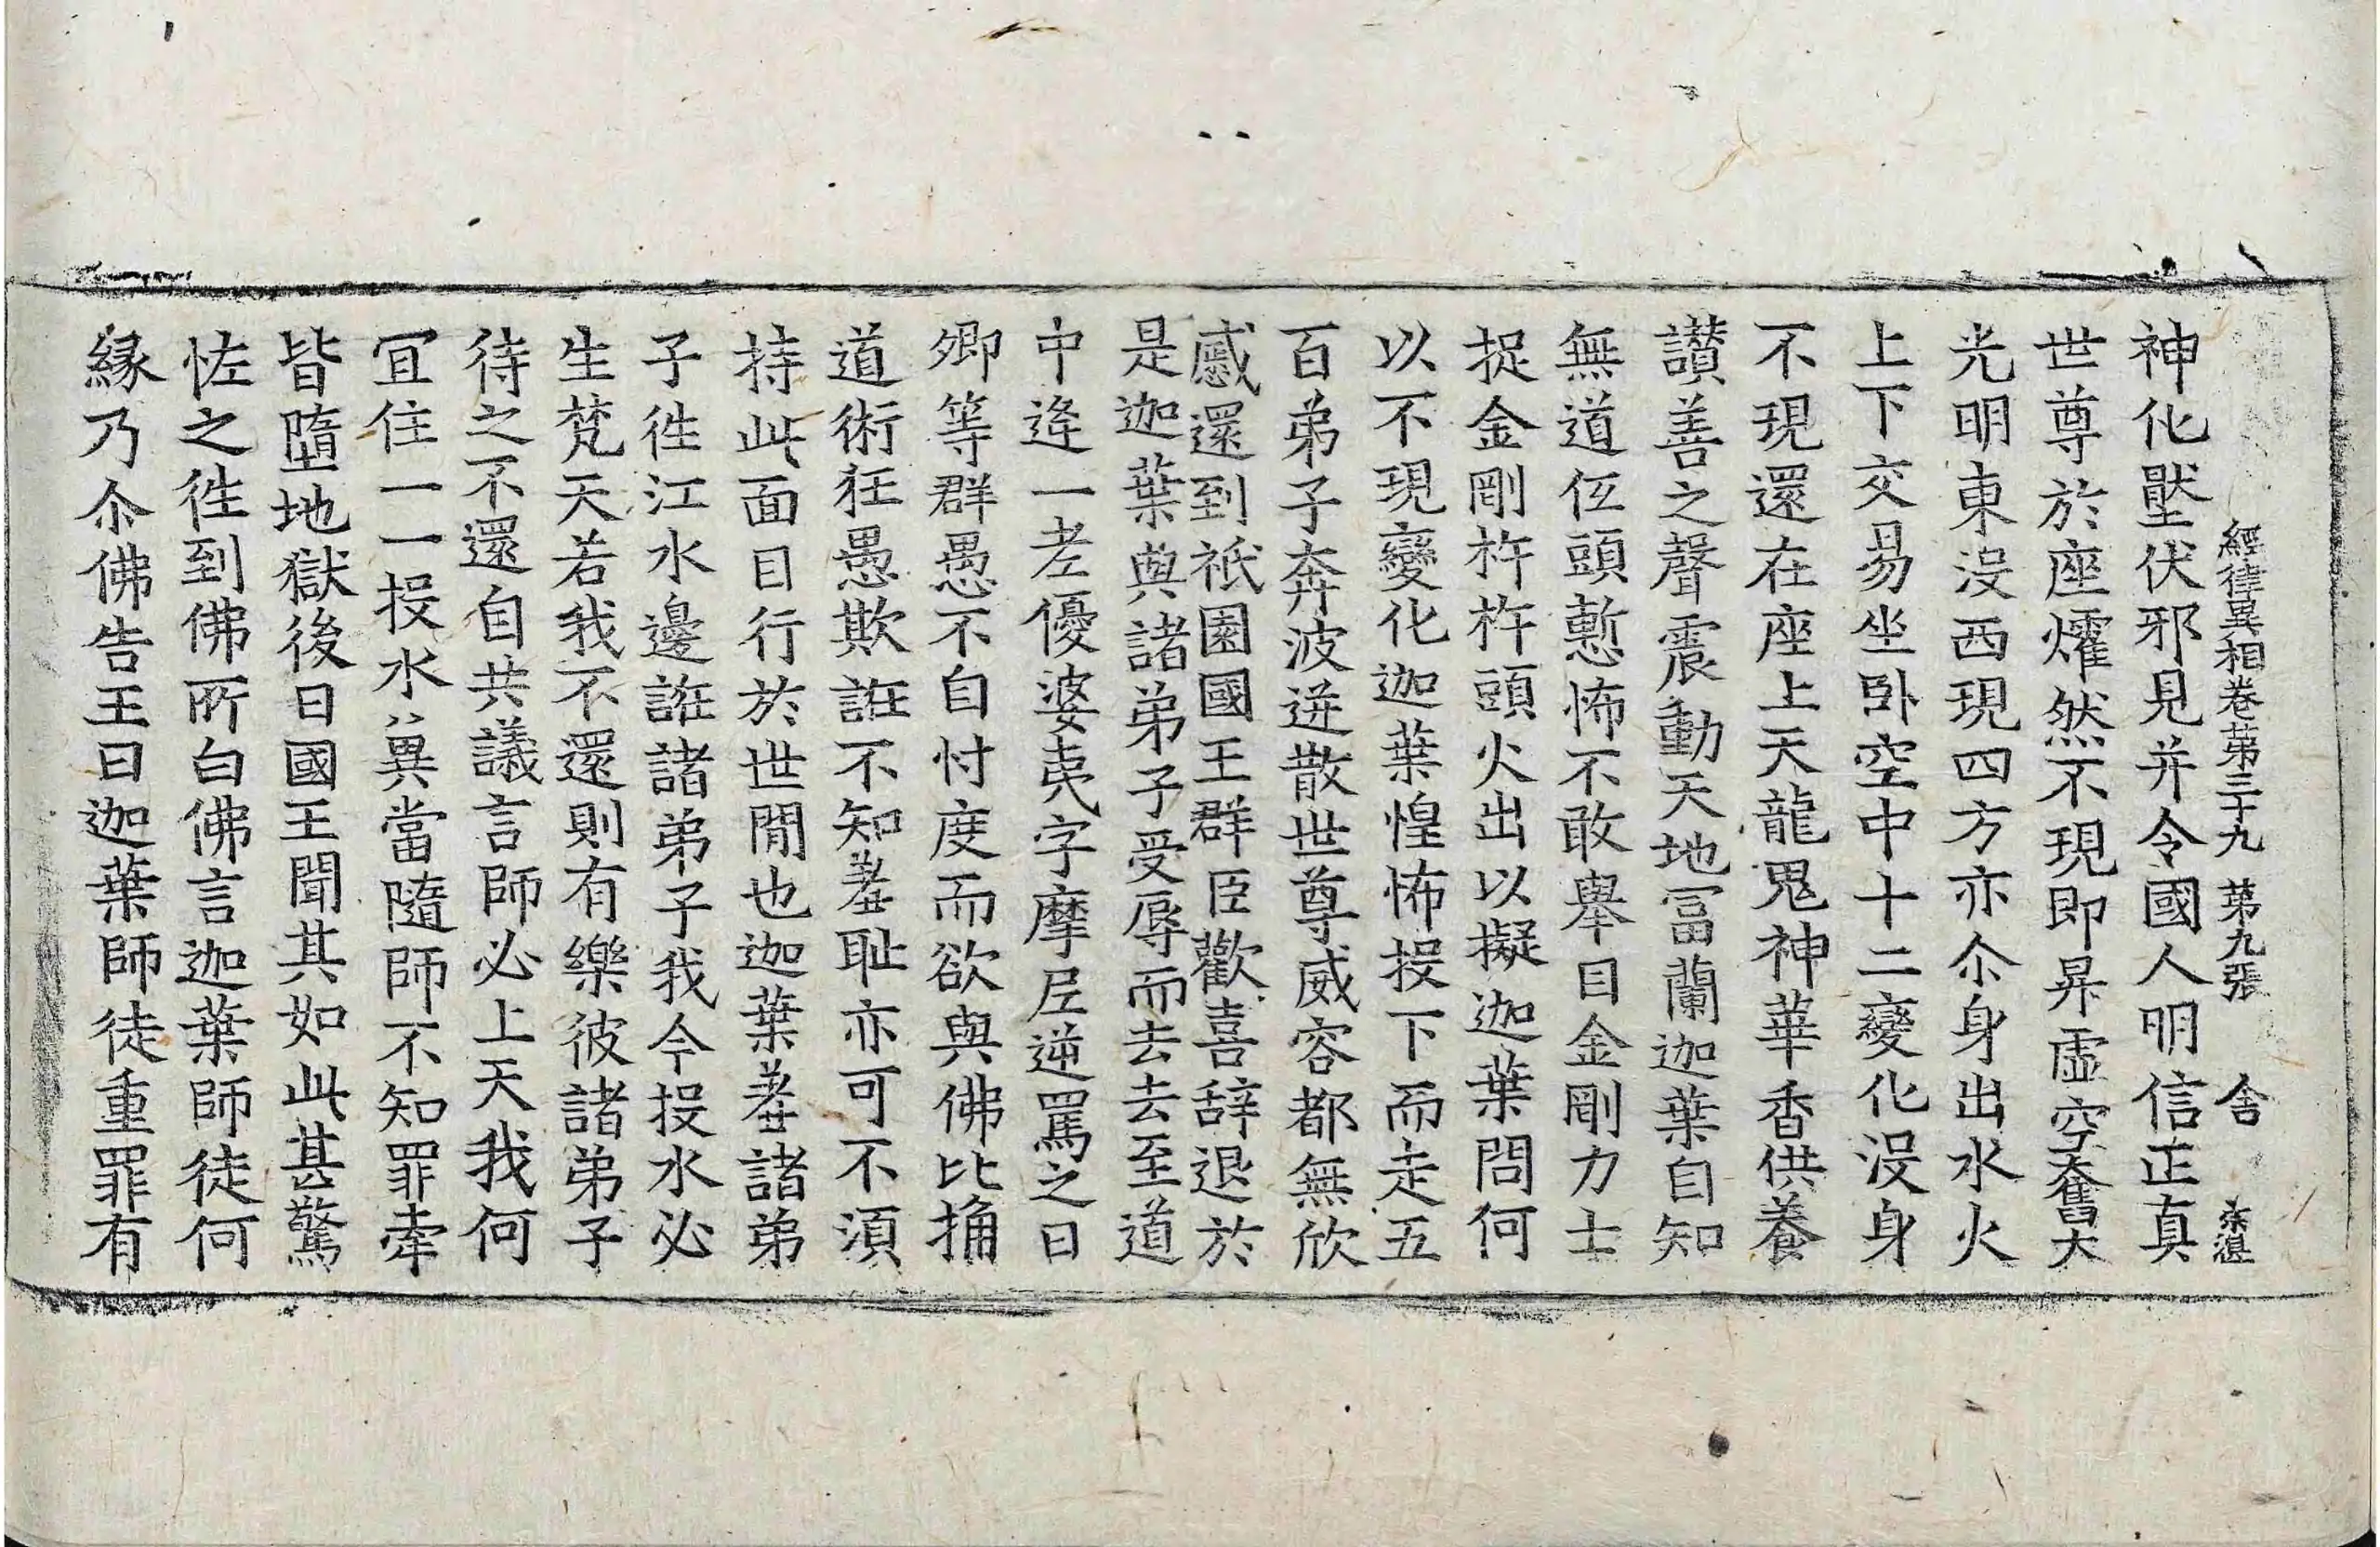 經律異相卷第三十九 第九張 舍
神化壓伏邪見并令國人明信正真
世尊於座燿然不現即昇虛空奮大
光明東没西現四方亦尒身出水火
上下交易坐卧空中十二變化没身
不現還在座上天龍鬼神華香供養
讃善之聲震動天地冨蘭迦葉自知
無道伍頭慙怖不敢舉目金剛力士
捉金剛杵杵頭火出以擬迦葉問何
以不現變化迦葉惶怖投下而走五
百弟子奔波迸散世尊威容都無欣
慼還到祇園國王群臣歡喜辝退於
是迦葉與諸弟子受辱而去去至道
中逄一老優婆夷字摩尼逆罵之曰
卿等群愚不自忖度而欲與佛比捔
道術狂愚欺誑不知羞耻亦可不湏
持此面目行於世閒也迦葉羞諸弟
子徃江水邊誑諸弟子我今投水必
生梵天若我不還則有樂彼諸弟子
待之不還自共議言師必上天我何
冝住一一投水兾當隨師不知罪牽
皆墮地獄後日國王聞其如此甚驚
恠之徃到佛所白佛言迦葉師徒何
緣乃尒佛告王曰迦葉師徒重罪有